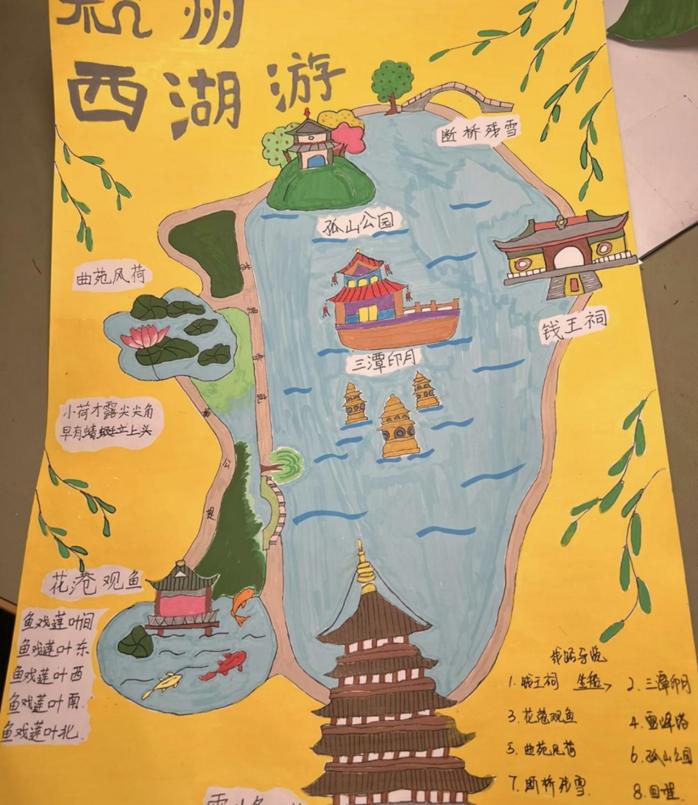 杭州
西湖游
断桥残雪
孤山公园
曲苑风荷
钱王祠
三潭印月
小荷才露尖尖角
早有蜻蜓立上头
公
堤
花港观鱼
鱼戏莲叶间
鱼戏莲叶东
鱼戏莲叶西
鱼戏莲叶南
鱼戏莲叶北
1. 钱王祠
2. 三潭印月
3. 花港观鱼
4. 雷峰塔
5. 曲苑风荷
6. 孤山公园
7. 断桥残雪
8. 回程